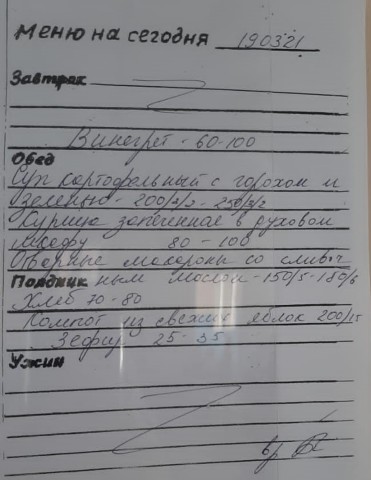 Меню на сегодня 190321
Завтрак
Винегрет - 60-100
Обед
Суп картофельный с горохом и
зеленью - 200/2/2 - 250/2/2
Курица запеченная в духовом
шкафу 80 - 100
Отварные макароны со сливоч
Полдник ным маслом - 150/5 - 180/5
Хлеб 70 - 80
Компот из свежих яблок 200/15
Зефир 25 - 35
Ужин
вр